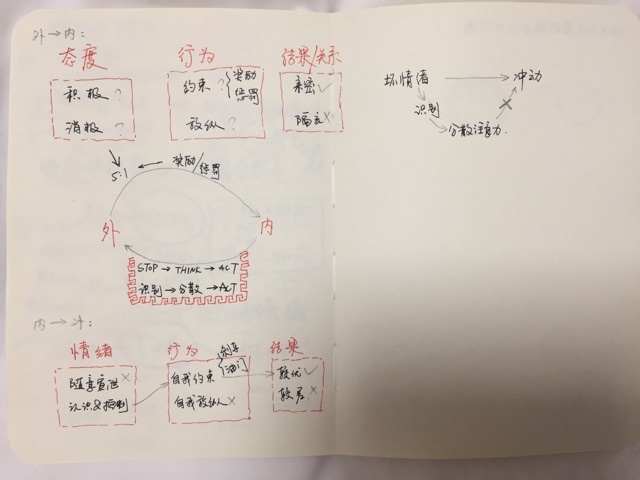 外→内:
态度
积极?
消极?
行为
约束? 奖励
惩罚
放纵?
结果/关系
亲密✓
隔玄×
5:1 ← 奖励/惩罚
外 内
STOP → THINK → ACT
识别 → 分散 → ACT
内→外:
情绪
随意宣泄×
认识&控制
行为
自我约束 刹车
油门
自我放纵×
结果
较优✓
较差×
坏情绪 → 冲动
识别
分散注意力